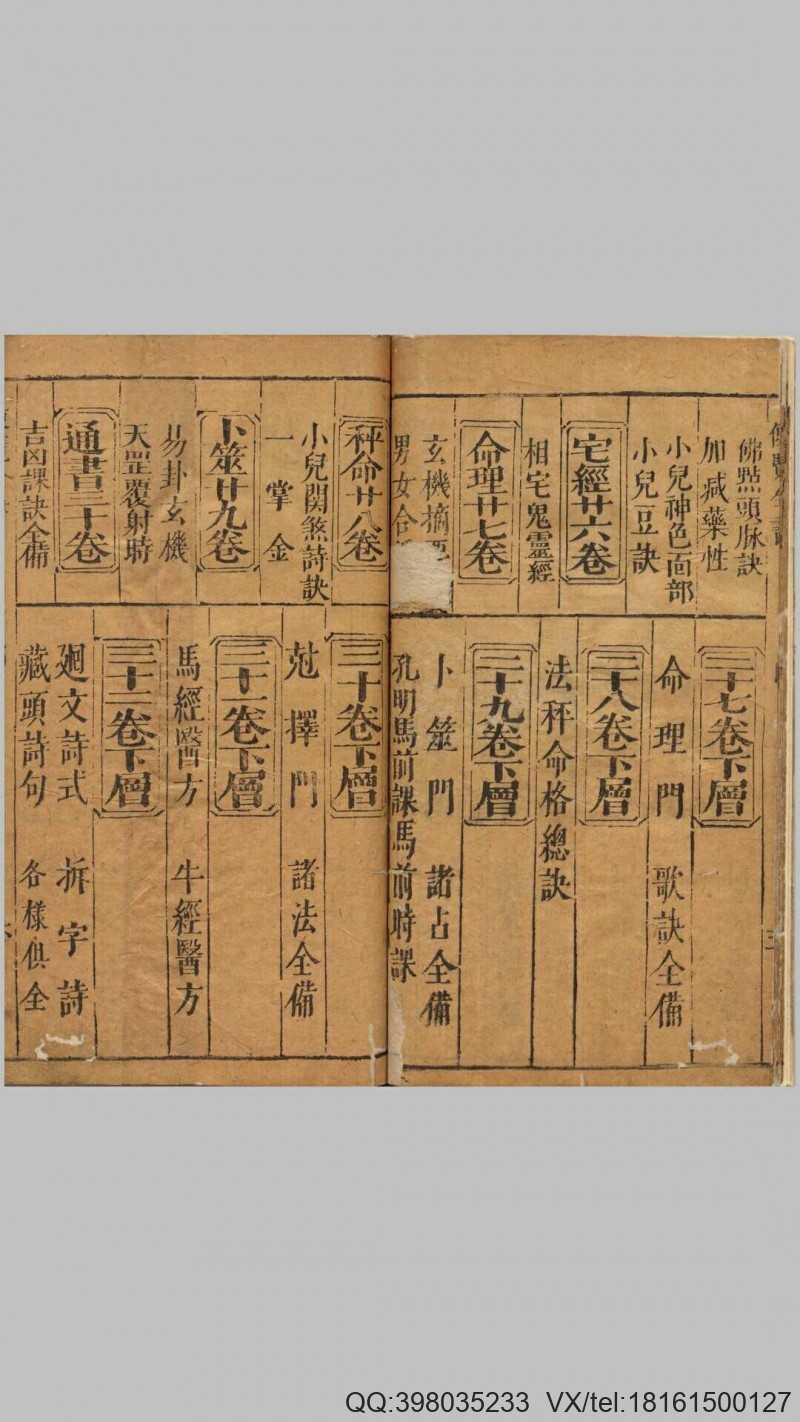 佛㸃頭脉訣
加减藥性
小兒神色面部
小兒豆訣
宅經廿六卷
相宅鬼靈經
命理廿七卷
玄機摘
男女合
二十七卷下層
命理門 歌訣全備
二十八卷下層
法秤命格總訣
二十九卷下層
卜筮門 諸占全備
孔明馬前課馬前時課
秤命廿八卷
小兒関煞詩訣
一掌金
卜筮廿九卷
易卦玄機
天罡覆射時
通書三十卷
吉凶課訣全備
三十卷下層
尅擇門 諸法全備
三十一卷下層
馬經醫方 牛經醫方
三十二卷下層
廻文詩式 拆字詩
藏頭詩句 各様俱全
QQ:398035233 VX/tel:18161500127